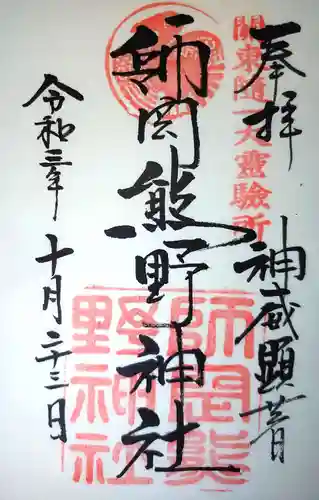 奉拝
関東随一大霊験所
神威顕著
師岡熊野神社
師岡熊野神社
令和三年
十月二十三日